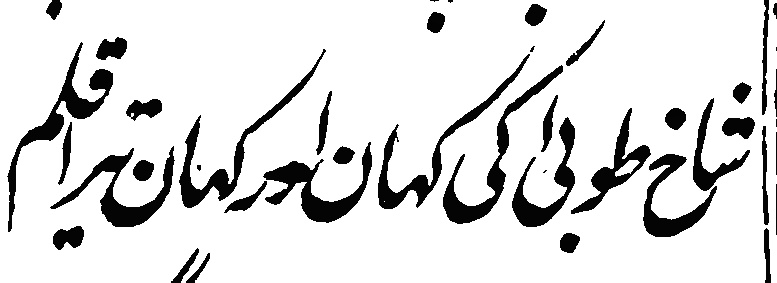 شاخ طوبیٰ کی کہان اور کہان تیرا قلم